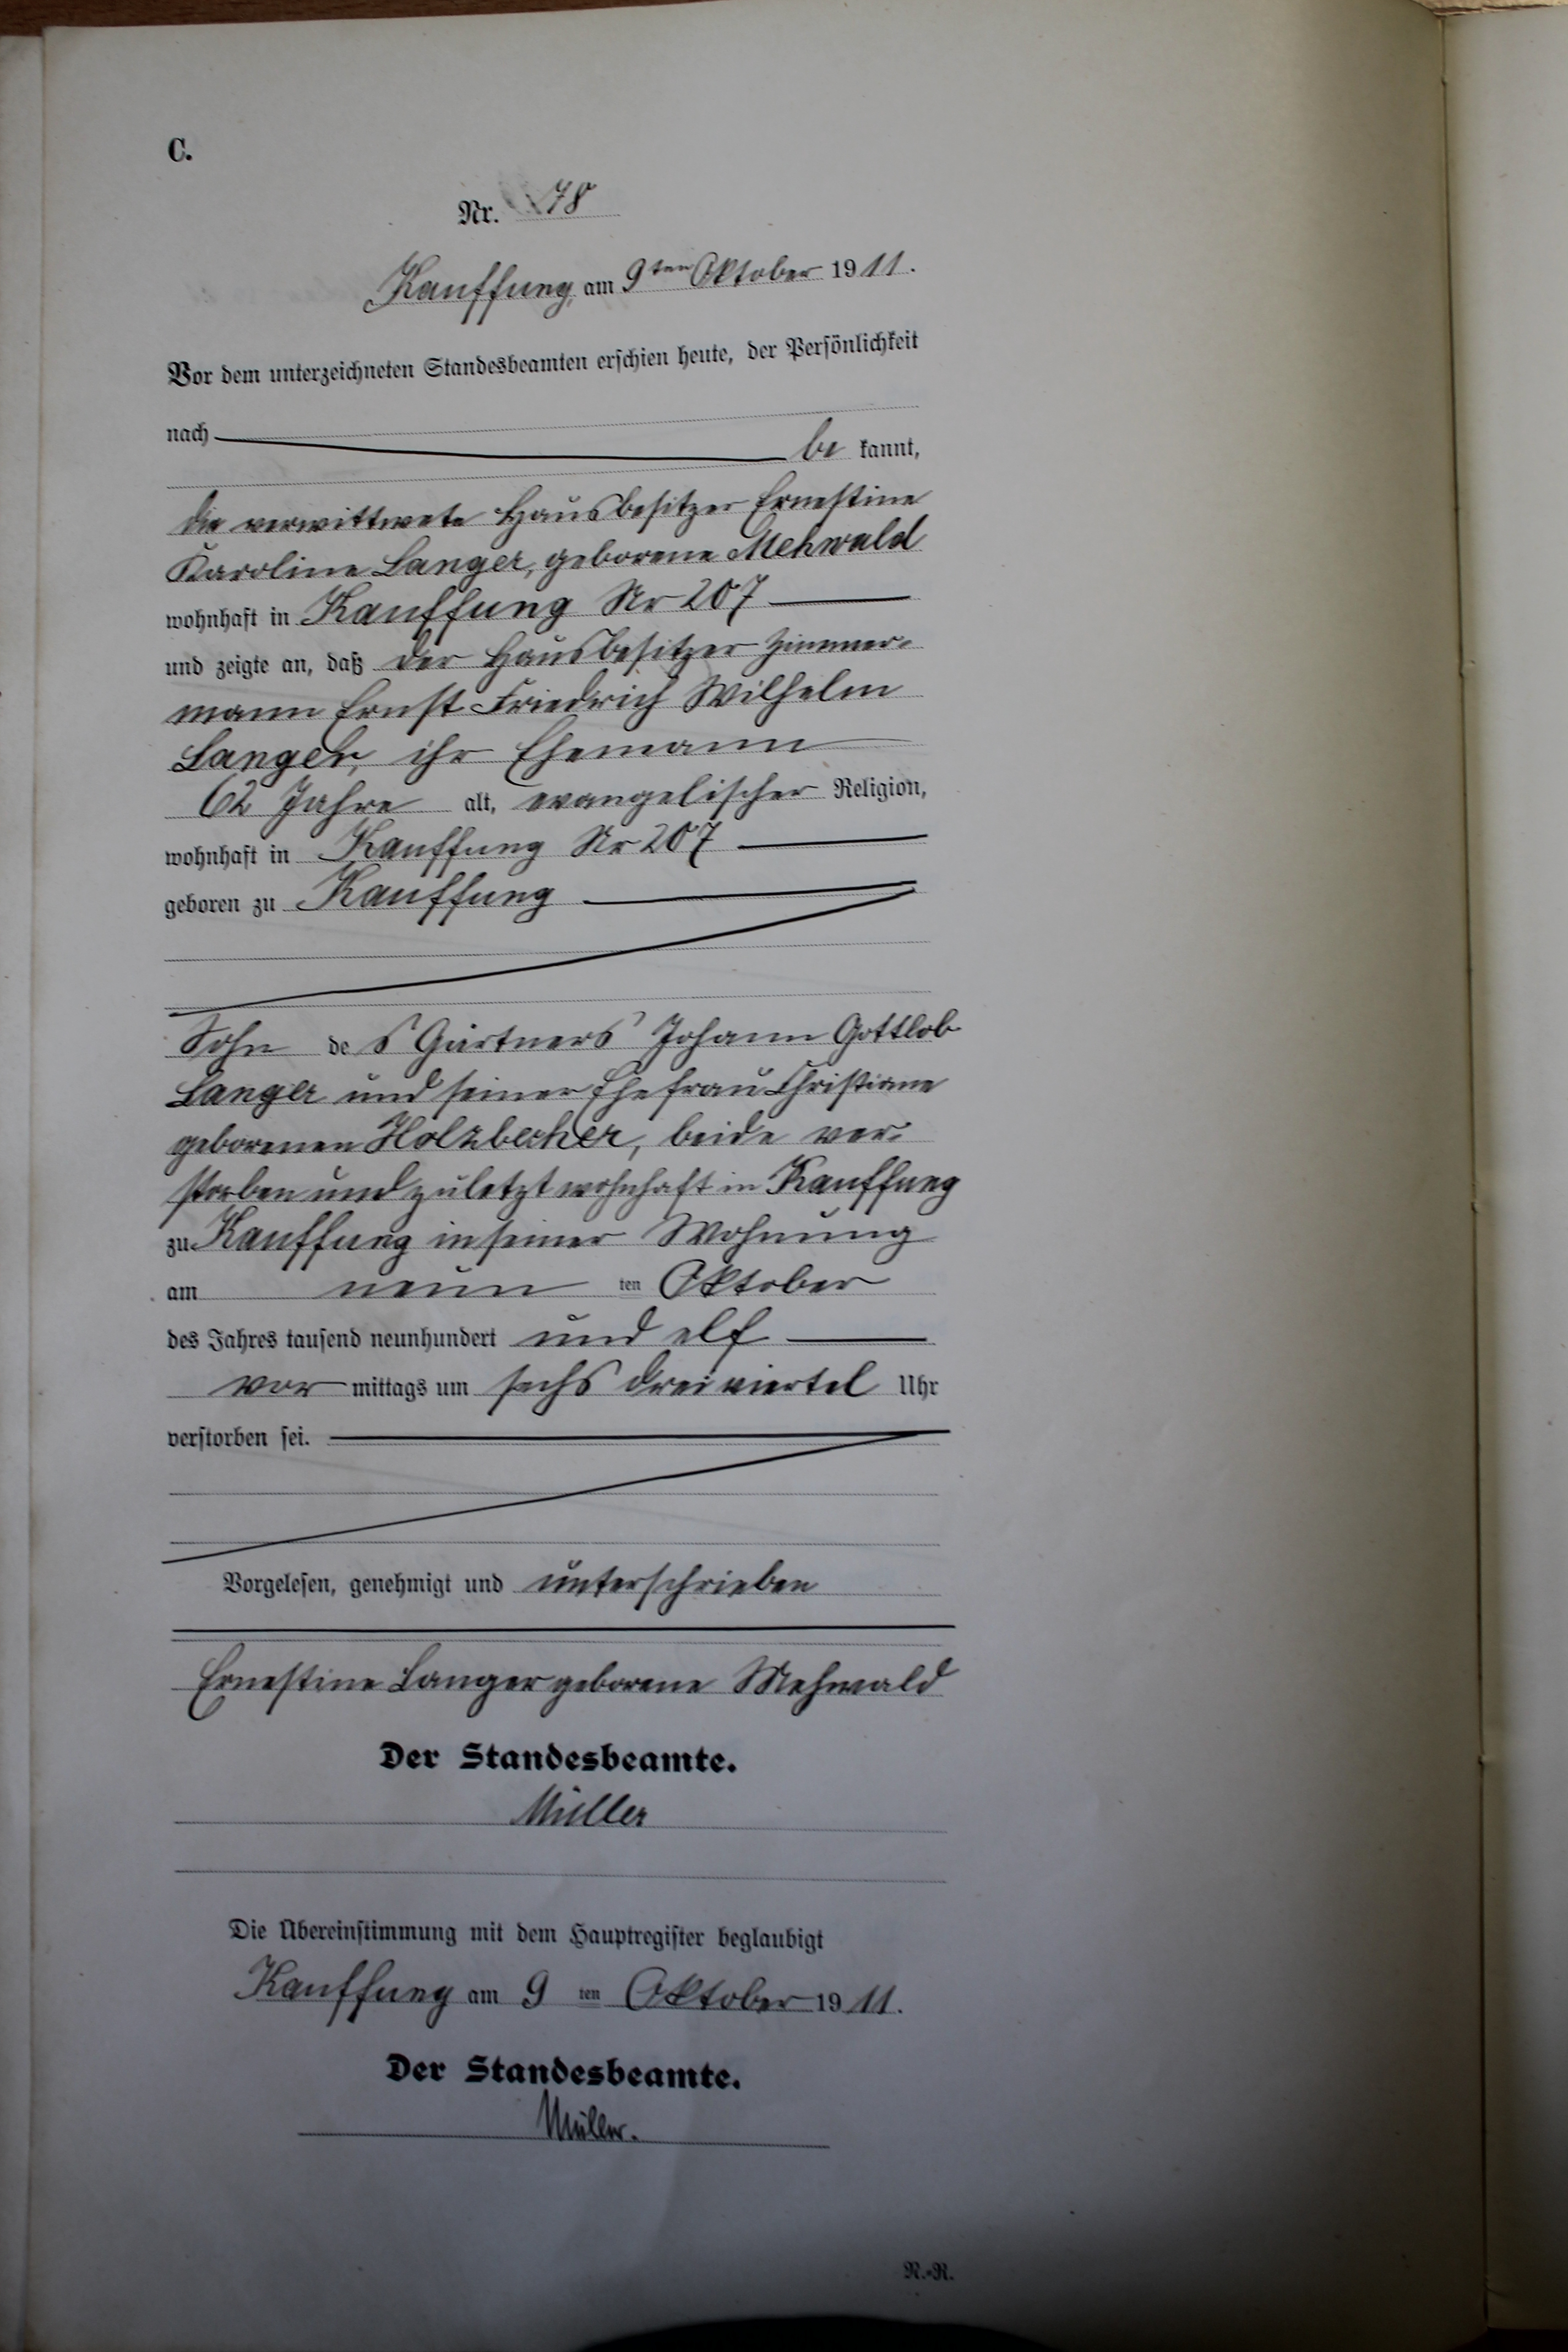 C.
Nr. 78
Kauffung, am 9ten Oktober 1911.
Vor dem unterzeichneten Standesbeamten erschien heute, der Persönlichkeit
nach be kannt,
die verwittwete Hausbesitzer Ernestine
Karoline Langer, geborene Mehwald
wohnhaft in Kauffung Nr 207
und zeigte an, daß der Hausbesitzer Zimmer-
mann Ernst Friedrich Wilhelm
Langer, ihr Ehemann
62 Jahre alt, evangelischer Religion,
wohnhaft in Kauffung Nr 207
geboren zu Kauffung
Sohn des Gärtners Johann Gottlob
Langer und seiner Ehefrau Christiane
geborenen Holzbecher, beide ver-
storben und zuletzt wohnhaft in Kauffung
zu Kauffung in seiner Wohnung
am neun ten Oktober
des Jahres tausend neunhundert und elf
vor mittags um sechs dreiviertel Uhr
verstorben sei.
Vorgelesen, genehmigt und unterschrieben
Ernestine Langer geborene Mehwald
Der Standesbeamte.
Müller
Die Übereinstimmung mit dem Hauptregister beglaubigt
Kauffung am 9 ten Oktober 1911.
Der Standesbeamte.
Müller.
N.-R.